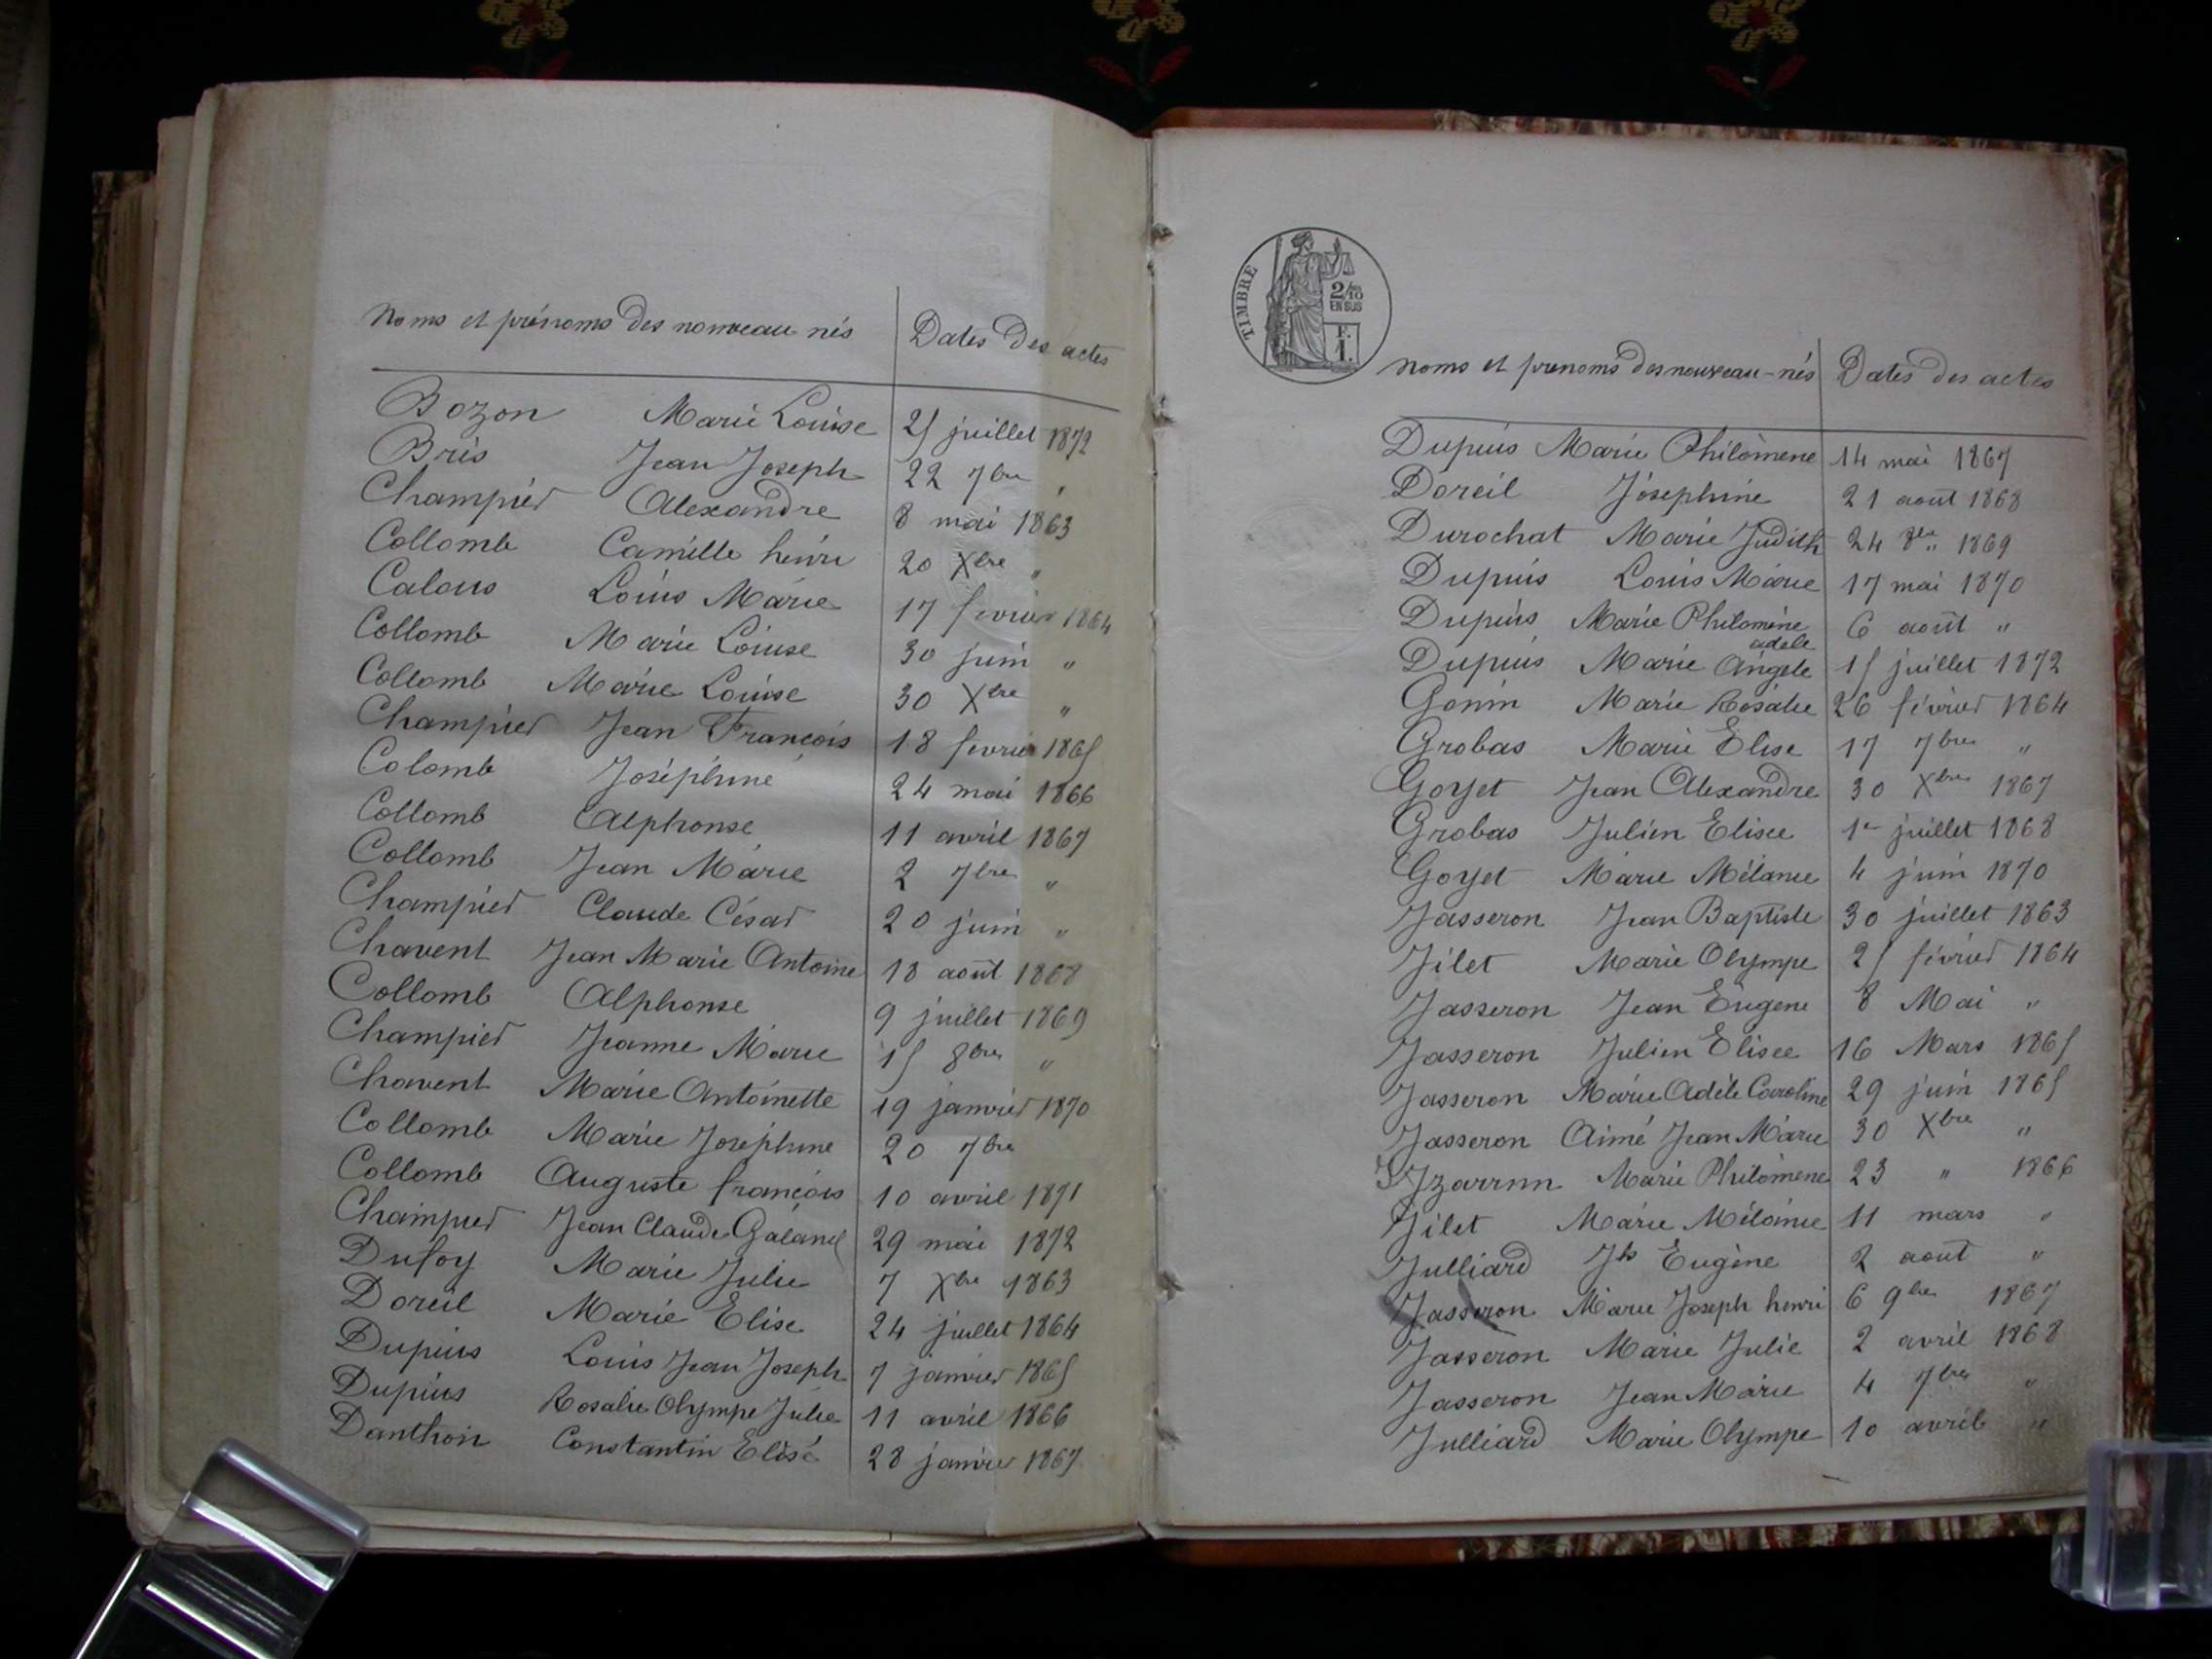 Noms et prénoms des nouveau nés Dates des actes
Bozon Marie Louise 25 juillet 1872
Bris Jean Joseph 22 7bre "
Champier Alexandre 8 mai 1863
Collomb Camille henri 20 Xbre "
Calous Louis Marie 17 fevrier 1864
Collomb Marie Louise 30 juin "
Collomb Marie Louise 30 Xbre "
Champier Jean François 18 fevrier 1865
Colomb Joséphine 24 mai 1866
Collomb Alphonse 11 avril 1867
Collomb Jean Marie 2 7bre "
Champier Claude César 20 juin "
Chavent Jean Marie Antoine 18 août 1868
Collomb Alphonse 9 juillet 1869
Champier Jeanne Marie 15 8bre "
Chavent Marie Antoinette 19 janvier 1870
Collomb Marie Josephine 20 7bre
Collomb Auguste françois 10 avril 1871
Champier Jean Claude 29 mai 1872
Dufoy Marie Julie 7 Xbre 1863
Doreil Marie Elise 24 juillet 1864
Dupuis Louis Jean Joseph 7 janvier 1865
Dupuis Rosalie Olympe Julie 11 avril 1866
Danthon Constantin Elisé 28 janvier 1867
TIMBRE
2/10
EN SUS
F.
1.
Noms et prenoms des nouveau-nés Dates des actes
Dupuis Marie Philomène 14 mai 1867
Doreil Joséphine 21 août 1868
Durochat Marie Judith 24 8bre 1869
Dupuis Louis Marie 17 mai 1870
Dupuis Marie Philomène 6 août "
adele
Dupuis Marie Angele 15 juillet 1872
Gonin Marie Rosalie 26 février 1864
Grobas Marie Elise 17 7bre "
Goyet Jean Alexandre 30 Xbre 1867
Grobas Julien Elisee 1er juillet 1868
Goyet Marie Mélanie 4 juin 1870
Jasseron Jean Baptiste 30 juillet 1863
Jilet Marie Olympe 25 février 1864
Jasseron Jean Eugene 8 Mai "
Jasseron Julien Elisee 16 Mars 1865
Jasseron Marie Adèle Caroline 29 juin 1865
Jasseron Aimé Jean Marie 30 Xbre "
Marie Philomène 23 " 1866
Jilet Marie Mélanie 11 mars "
Julliard Jh Eugène 2 aout "
Jasseron Marie Joseph henri 6 9bre 1867
Jasseron Marie Julie 2 avril 1868
Jasseron Jean Marie 4 7bre "
Julliard Marie Olympe 10 avril "